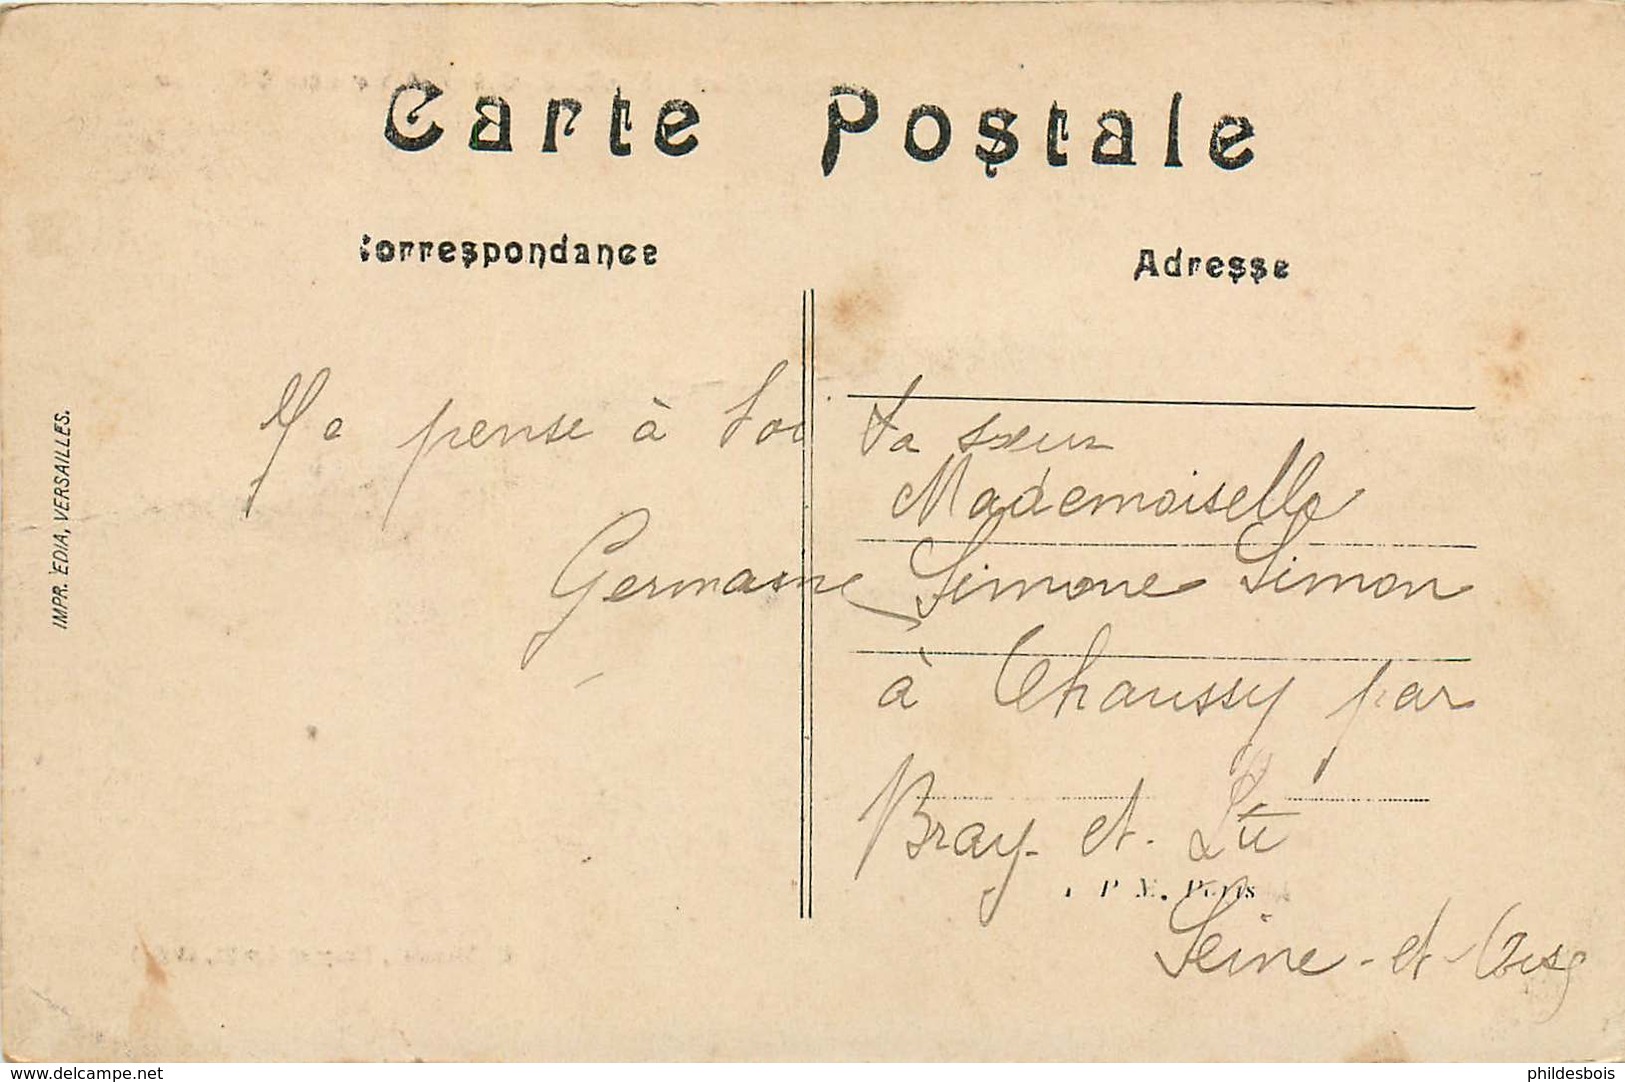 Carte Postale
Correspondance
Adresse
Je pense à toi ta sœur
Germaine
Mademoiselle
Simone Simon
à Chaussy par
Bray-et-Lû
Seine-et-Oise
IMPR. EDIA, VERSAILLES.
P M. Paris
www.delcampe.net
phildesbois